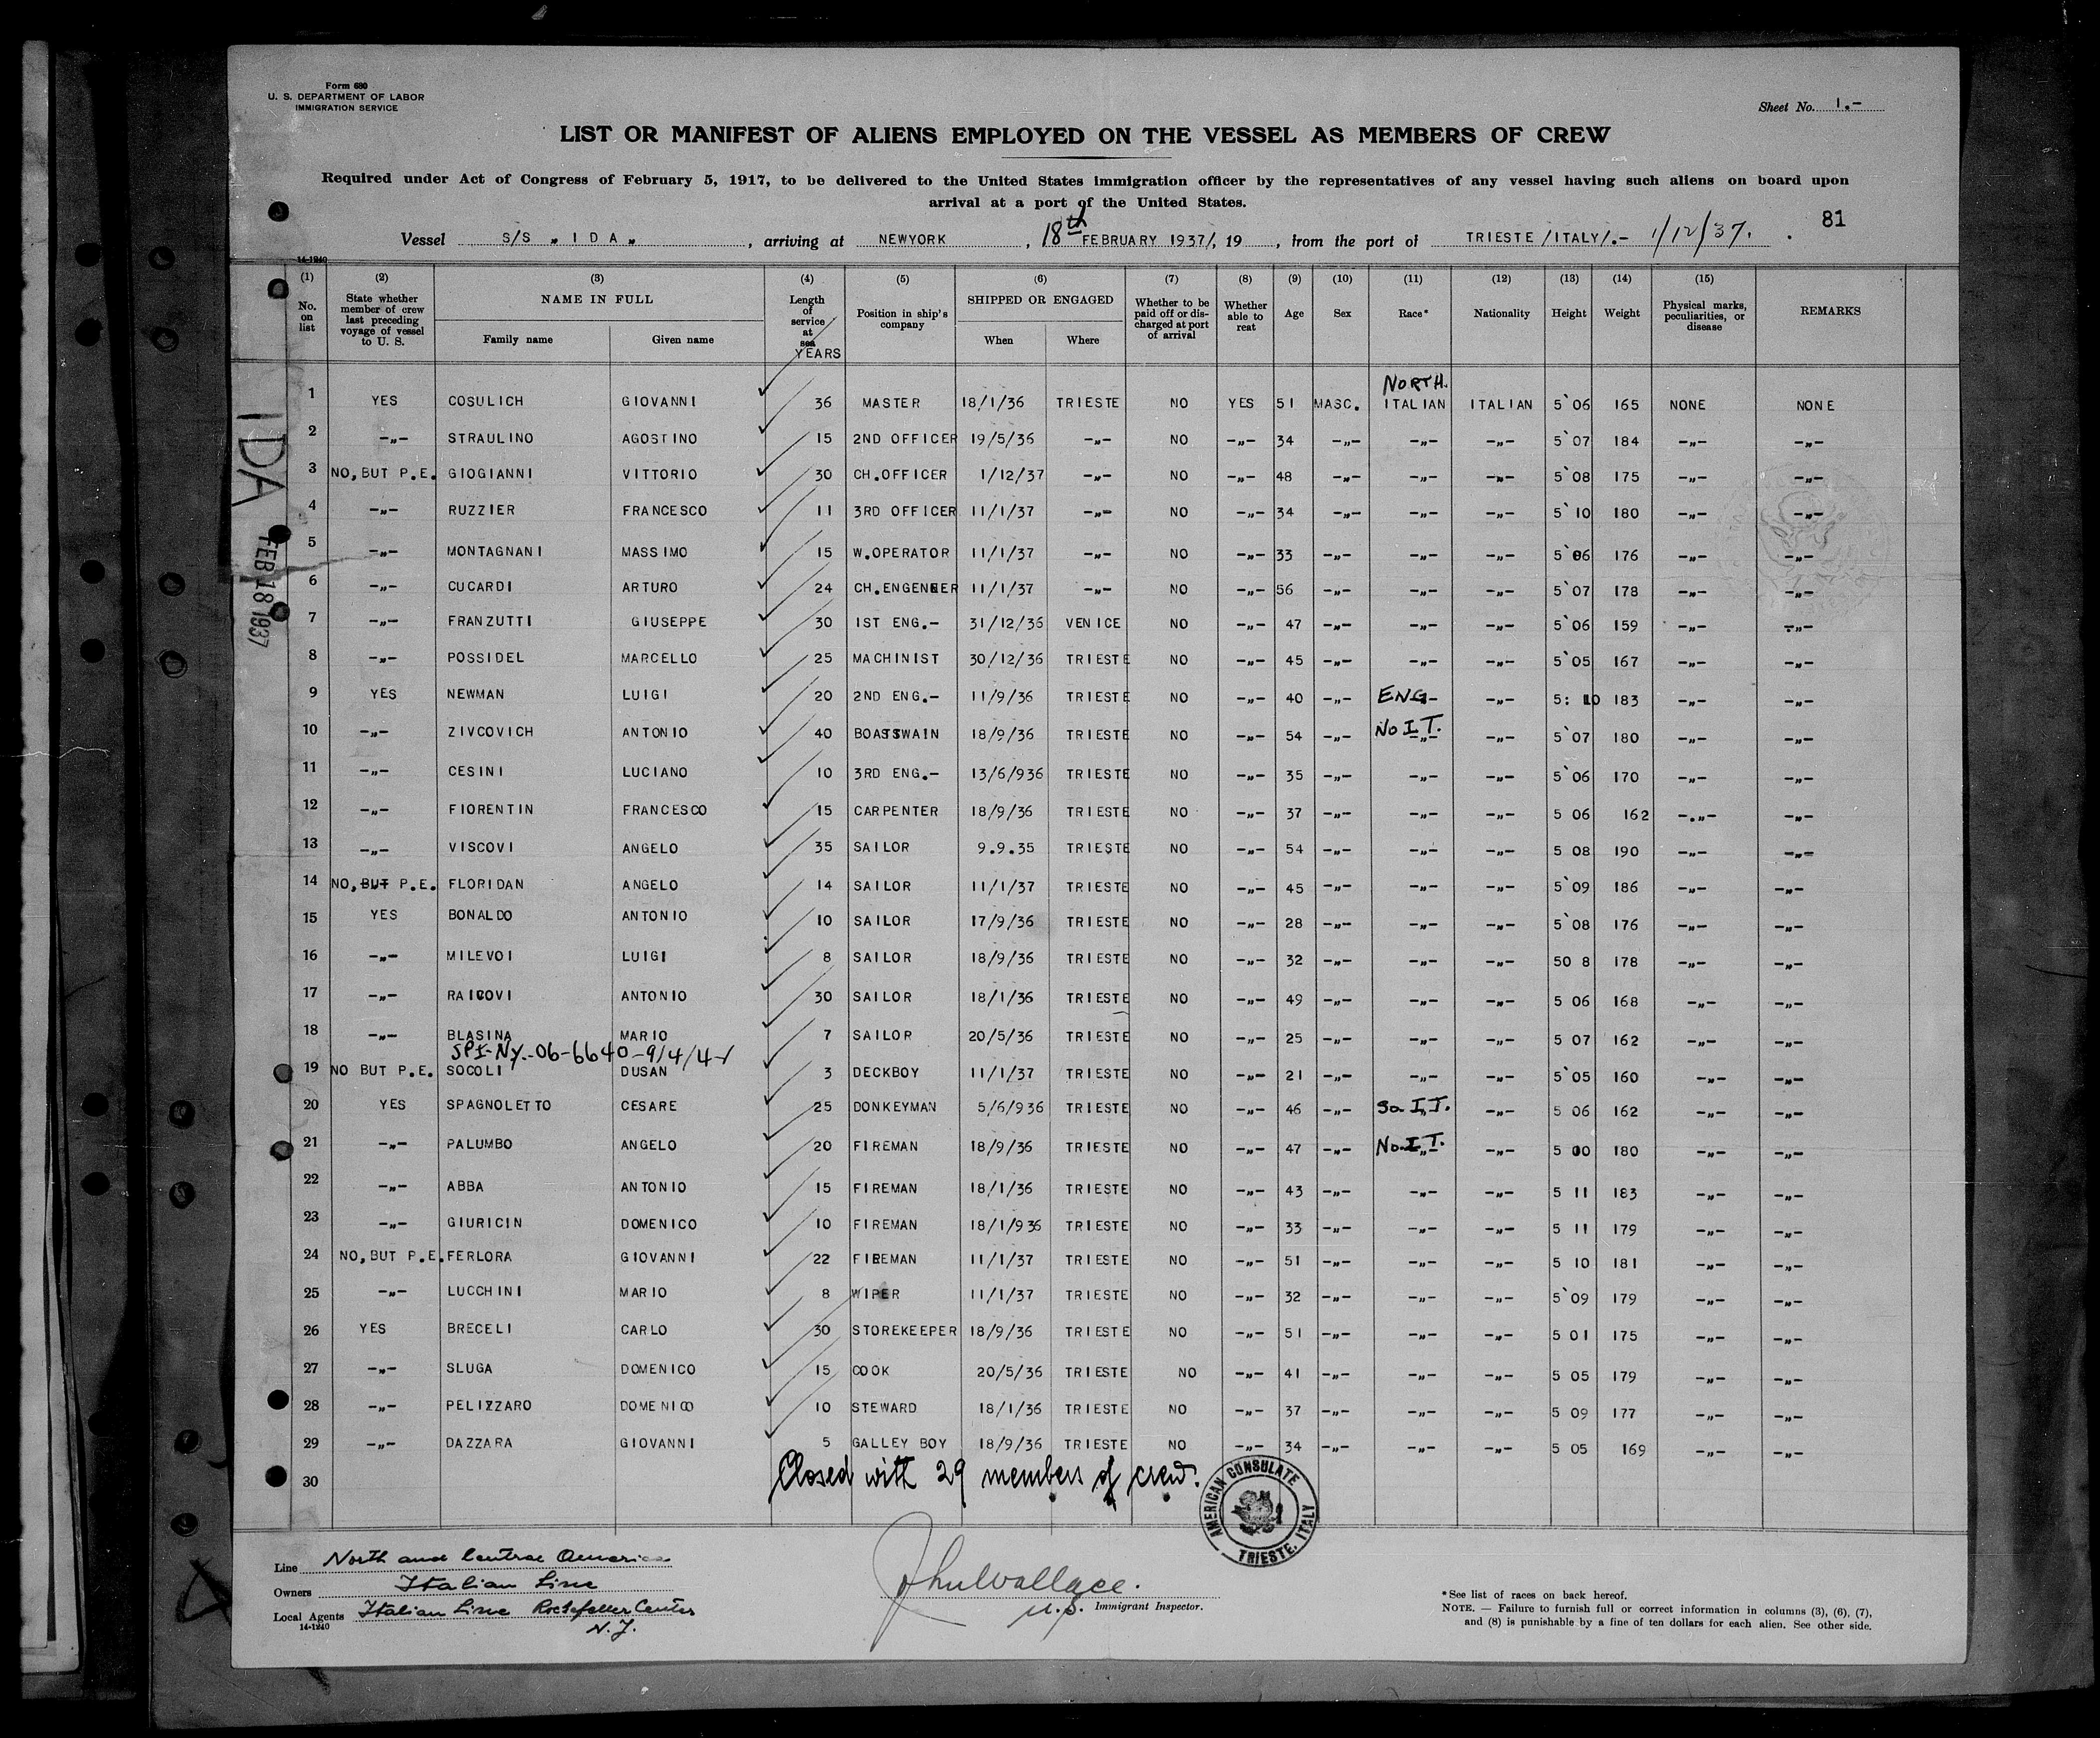 Form 680
U. S. DEPARTMENT OF LABOR
IMMIGRATION SERVICE
Sheet No. 1.-
LIST OR MANIFEST OF ALIENS EMPLOYED ON THE VESSEL AS MEMBERS OF CREW
Required under Act of Congress of February 5, 1917, to be delivered to the United States immigration officer by the representatives of any vessel having such aliens on board upon
arrival at a port of the United States.
81
Vessel S/S „ I D A „ , arriving at NEWYORK , 18th FEBRUARY 1937/, 19 , from the port of TRIESTE /ITALY/.- 1/12/37.
14-1240
(1) (2) (3) (4) (5) (6) (7) (8) (9) (10) (11) (12) (13) (14) (15)
No. on list State whether member of crew last preceding voyage of vessel to U. S. NAME IN FULL Family name Given name Length of service at sea YEARS Position in ship's company SHIPPED OR ENGAGED When Where Whether to be paid off or discharged at port of arrival Whether able to reat Age Sex Race* Nationality Height Weight Physical marks, peculiarities, or disease REMARKS
NORTH.
1 YES COSULICH GIOVANNI 36 MASTER 18/1/36 TRIESTE NO YES 51 MASC. ITALIAN ITALIAN 5`06 165 NONE NONE
2 -„- STRAULINO AGOSTINO 15 2ND OFFICER 19/5/36 -„- NO -„- 34 -„- -„- -„- 5`07 184 -„- -„-
3 NO, BUT P.E. GIOGIANNI VITTORIO 30 CH.OFFICER 1/12/37 -„- NO -„- 48 -„- -„- -„- 5`08 175 -„- -„-
4 -„- RUZZIER FRANCESCO 11 3RD OFFICER 11/1/37 -„- NO -„- 34 -„- -„- -„- 5` 10 180 -„- -„-
5 -„- MONTAGNANI MASSIMO 15 W.OPERATOR 11/1/37 -„- NO -„- 33 -„- -„- -„- 5`06 176 -„- -„-
6 -„- CUCARDI ARTURO 24 CH.ENGENEER 11/1/37 -„- NO -„- 56 -„- -„- -„- 5`07 178 -„- -„-
7 -„- FRANZUTTI GIUSEPPE 30 1ST ENG.- 31/12/36 VENICE NO -„- 47 -„- -„- -„- 5`06 159 -„- -„-
8 -„- POSSIDEL MARCELLO 25 MACHINIST 30/12/36 TRIESTE NO -„- 45 -„- -„- -„- 5`05 167 -„- -„-
9 YES NEWMAN LUIGI 20 2ND ENG.- 11/9/36 TRIESTE NO -„- 40 -„- ENG- -„- 5: 10 183 -„- -„-
10 -„- ZIVCOVICH ANTONIO 40 BOATSWAIN 18/9/36 TRIESTE NO -„- 54 -„- No I T. -„- 5`07 180 -„- -„-
11 -„- CESINI LUCIANO 10 3RD ENG.- 13/6/936 TRIESTE NO -„- 35 -„- -„- -„- 5`06 170 -„- -„-
12 -„- FIORENTIN FRANCESCO 15 CARPENTER 18/9/36 TRIESTE NO -„- 37 -„- -„- -„- 5 06 162 -„- -„-
13 -„- VISCOVI ANGELO 35 SAILOR 9.9.35 TRIESTE NO -„- 54 -„- -„- -„- 5 08 190 -„- -„-
14 NO, BUT P.E. FLORIDAN ANGELO 14 SAILOR 11/1/37 TRIESTE NO -„- 45 -„- -„- -„- 5`09 186 -„- -„-
15 YES BONALDO ANTONIO 10 SAILOR 17/9/36 TRIESTE NO -„- 28 -„- -„- -„- 5`08 176 -„- -„-
16 -„- MILEVOI LUIGI 8 SAILOR 18/9/36 TRIESTE NO -„- 32 -„- -„- -„- 50 8 178 -„- -„-
17 -„- RAICOVI ANTONIO 30 SAILOR 18/1/36 TRIESTE NO -„- 49 -„- -„- -„- 5 06 168 -„- -„-
18 -„- BLASINA MARIO 7 SAILOR 20/5/36 TRIESTE NO -„- 25 -„- -„- -„- 5 07 162 -„- -„-
SPI-NY.-06-6640-9/4/4-1
19 NO BUT P.E. SOCOLI DUSAN 3 DECKBOY 11/1/37 TRIESTE NO -„- 21 -„- -„- -„- 5`05 160 -„- -„-
20 YES SPAGNOLETTO CESARE 25 DONKEYMAN 5/6/936 TRIESTE NO -„- 46 -„- So I.T. -„- 5 06 162 -„- -„-
21 -„- PALUMBO ANGELO 20 FIREMAN 18/9/36 TRIESTE NO -„- 47 -„- No I T. -„- 5 00 180 -„- -„-
22 -„- ABBA ANTONIO 15 FIREMAN 18/1/36 TRIESTE NO -„- 43 -„- -„- -„- 5 11 183 -„- -„-
23 -„- GIURICIN DOMENICO 10 FIREMAN 18/1/936 TRIESTE NO -„- 33 -„- -„- -„- 5 11 179 -„- -„-
24 NO, BUT P.E. FERLORA GIOVANNI 22 FIREMAN 11/1/37 TRIESTE NO -„- 51 -„- -„- -„- 5 10 181 -„- -„-
25 -„- LUCCHINI MARIO 8 WIPER 11/1/37 TRIESTE NO -„- 32 -„- -„- -„- 5`09 179 -„- -„-
26 YES BRECELI CARLO 30 STOREKEEPER 18/9/36 TRIESTE NO -„- 51 -„- -„- -„- 5 01 175 -„- -„-
27 -„- SLUGA DOMENICO 15 COOK 20/5/36 TRIESTE NO -„- 41 -„- -„- -„- 5 05 179 -„- -„-
28 -„- PELIZZARO DOMENICO 10 STEWARD 18/1/36 TRIESTE NO -„- 37 -„- -„- -„- 5 09 177 -„- -„-
29 -„- DAZZARA GIOVANNI 5 GALLEY BOY 18/9/36 TRIESTE NO -„- 34 -„- -„- -„- 5 05 169 -„- -„-
30 Closed with 29 members of crew.
IDA
FEB 18 1937
AMERICAN CONSULATE
TRIESTE, ITALY
Line North and Central America
Owners Italian Line
Local Agents Italian Line Rockefeller Center
14-1240
N.Y.
John Wallace.
U.S. Immigrant Inspector.
*See list of races on back hereof.
NOTE. — Failure to furnish full or correct information in columns (3), (6), (7),
and (8) is punishable by a fine of ten dollars for each alien. See other side.